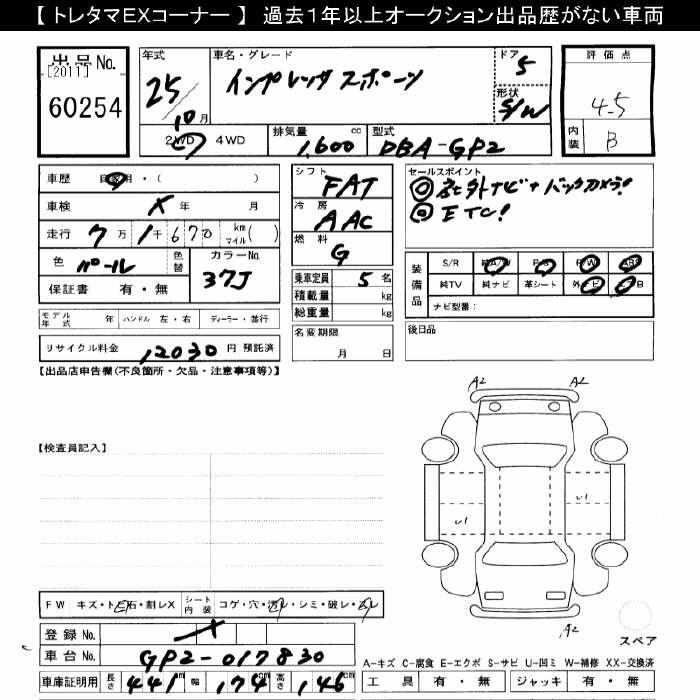 【 トレタマEXコーナー 】 過去1年以上オークション出品歴がない車両
出品No.
[2011]
60254
年式
25/10月
車名・グレード
インプレッサスポーツ
ドア
5
形状
S/W
評価点
4.5
内装
B
2WD 4WD
排気量
1,600 cc
型式
DBA-GP2
車歴 自家用・( )
車検 X 年 月
走行 7万1千670 km マイル( )
色 パール 色替
カラーNo.
37J
保証書 有・無
シフト
FAT
冷房
AAC
燃料
G
乗車定員 5 名
積載量 kg
総重量 kg
名変期限
月 日
セールスポイント
◎社外ナビ+バックカメラ!
◎ETC!
装備品
S/R 純A/W P/S P/W ABS
純TV 純ナビ 革シート 外ナビ
ナビ型番:
後日品
モデル年式 年 ハンドル 左・右 ディーラー・並行
リサイクル料金 12030 円 預託済
【出品店申告欄(不良箇所・欠品・注意事項等)】
【検査員記入】
A2 A2
U1
U1
A2
スペア
FW キズ・ト石・割レX シート内装 コゲ・穴・汚レ・シミ・破レ・
登録No. X
車台No. GP2-017830
車庫証明用 長さ 441 cm 幅 174 cm 高さ 146 cm
A-キズ C-腐食 E-エクボ S-サビ U-凹ミ W-補修 XX-交換済
工具 有・無 ジャッキ 有・無